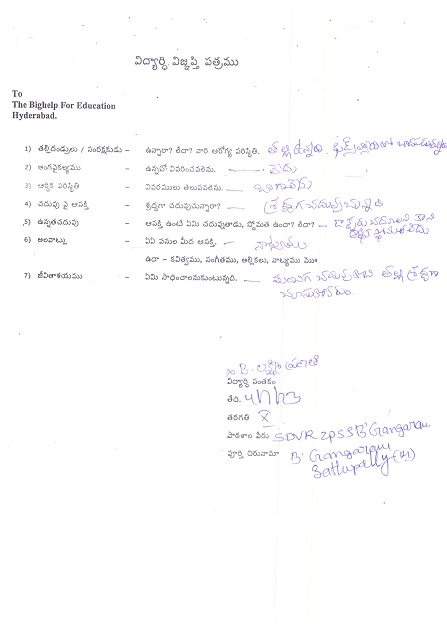 విద్యార్థి విజ్ఞప్తి పత్రము
To
The Bighelp For Education
Hyderabad.
1) తల్లిదండ్రులు / సంరక్షకుడు – ఉన్నారా? లేదా? వారి ఆరోగ్య పరిస్థితి. తల్లి ఉన్నారు,
2) అంగవైకల్యము – ఉన్నచో వివరించవలెను. — లేదు
3) ఆర్థిక పరిస్థితి – వివరములు తెలుపవలెను. — బాగాలేదు
4) చదువు పై ఆసక్తి – శ్రద్ధగా చదువుచున్నారా? — శ్రద్ధగా చదువుచున్నది
5) ఉన్నతచదువు – ఆసక్తి ఉంటే ఏమి చదువుతాడు, స్తోమత ఉందా? లేదా? —
6) అలవాట్లు – ఏఏ పనుల మీద ఆసక్తి. — నాట్యము
ఉదా – కవిత్వము, సంగీతము, అల్లికలు, నాట్యము మొ॥
7) జీవితాశయము – ఏమి సాధించాలనుకుంటున్నది. —
B. లక్ష్మీ ప్రణతి
విద్యార్థి సంతకం
తేది. 4/11/13
తరగతి X
పాఠశాల పేరు SDVR ZPSS B' Gangaram
పూర్తి చిరునామా B' Gangaram
Sattupally (M)